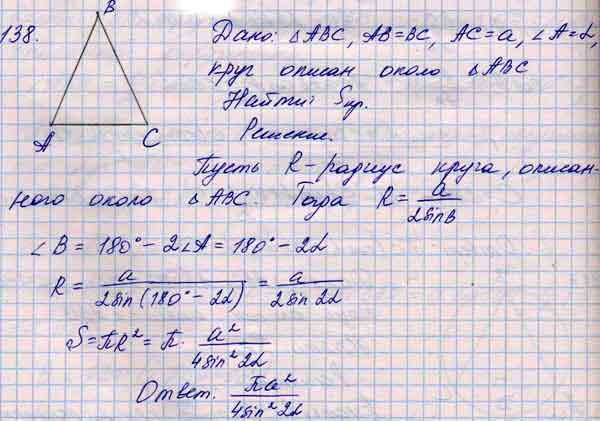 138.
B
A
C
Дано: △ABC, AB=BC, AC=a, ∠A=α,
круг описан около △ABC
Найти: Sкр.
Решение.
Пусть R – радиус круга, описан-
ного около △ABC. Тогда R = a/2sinB
∠B = 180° – 2∠A = 180° – 2α
R = a/2sin(180° – 2α) = a/2sin2α
S = πR² = π · a²/4sin²2α
Ответ. πa²/4sin²2α